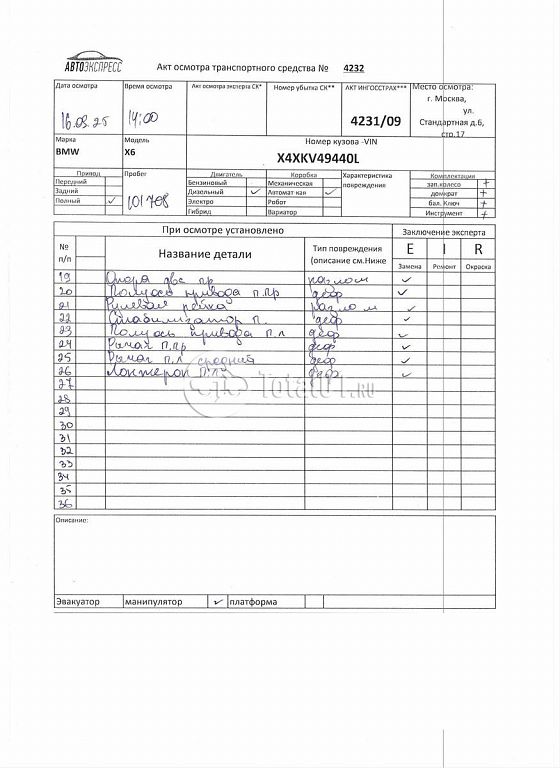 АВТОЭКСПРЕСС
Акт осмотра транспортного средства № 4232
Дата осмотра Время осмотра Акт осмотра эксперта СК* Номер убытка СК** АКТ ИНГОССТРАХ*** Место осмотра:
16.09.25 14:00 4231/09 г. Москва, ул. Стандартная д.6, стр.17
Марка Модель Номер кузова -VIN
BMW X6 X4XKV49440L
Привод Пробег Двигатель Коробка Характеристика повреждения Комплектация
Передний Бензиновый Механическая зап.колесо +
Задний Дизельный ✓ Автомат кая ✓ домкрат +
Полный ✓ 101798 Электро Робот бал. Ключ +
Гибрид Вариатор Инструмент +
При осмотре установлено Заключение эксперта
№ п/п Название детали Тип повреждения (описание см.Ниже E I R
Замена Ремонт Окраска
19 Опора двс пр разлом ✓
20 Полуось привода п.пр деф ✓
21 Рулевая рейка разлом ✓
22 Стабилизатор п. деф ✓
23 Полуось привода п.л деф ✓
24 Рычаг п.пр деф ✓
25 Рычаг п.л средний деф ✓
26 Лонжерон деф ✓
27
28
29
30
31
32
33
34
35
36
Total01.RU
Описание:
Эвакуатор манипулятор ✓ платформа